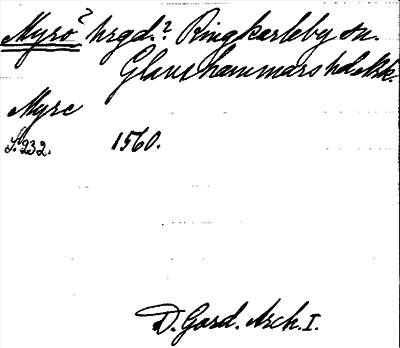 Myro? hrgd.? Ringkarleby sn.
Glanshammars hd. Nrk.
Myre
S. 232. 1560.
D. Gard. Arch. I.